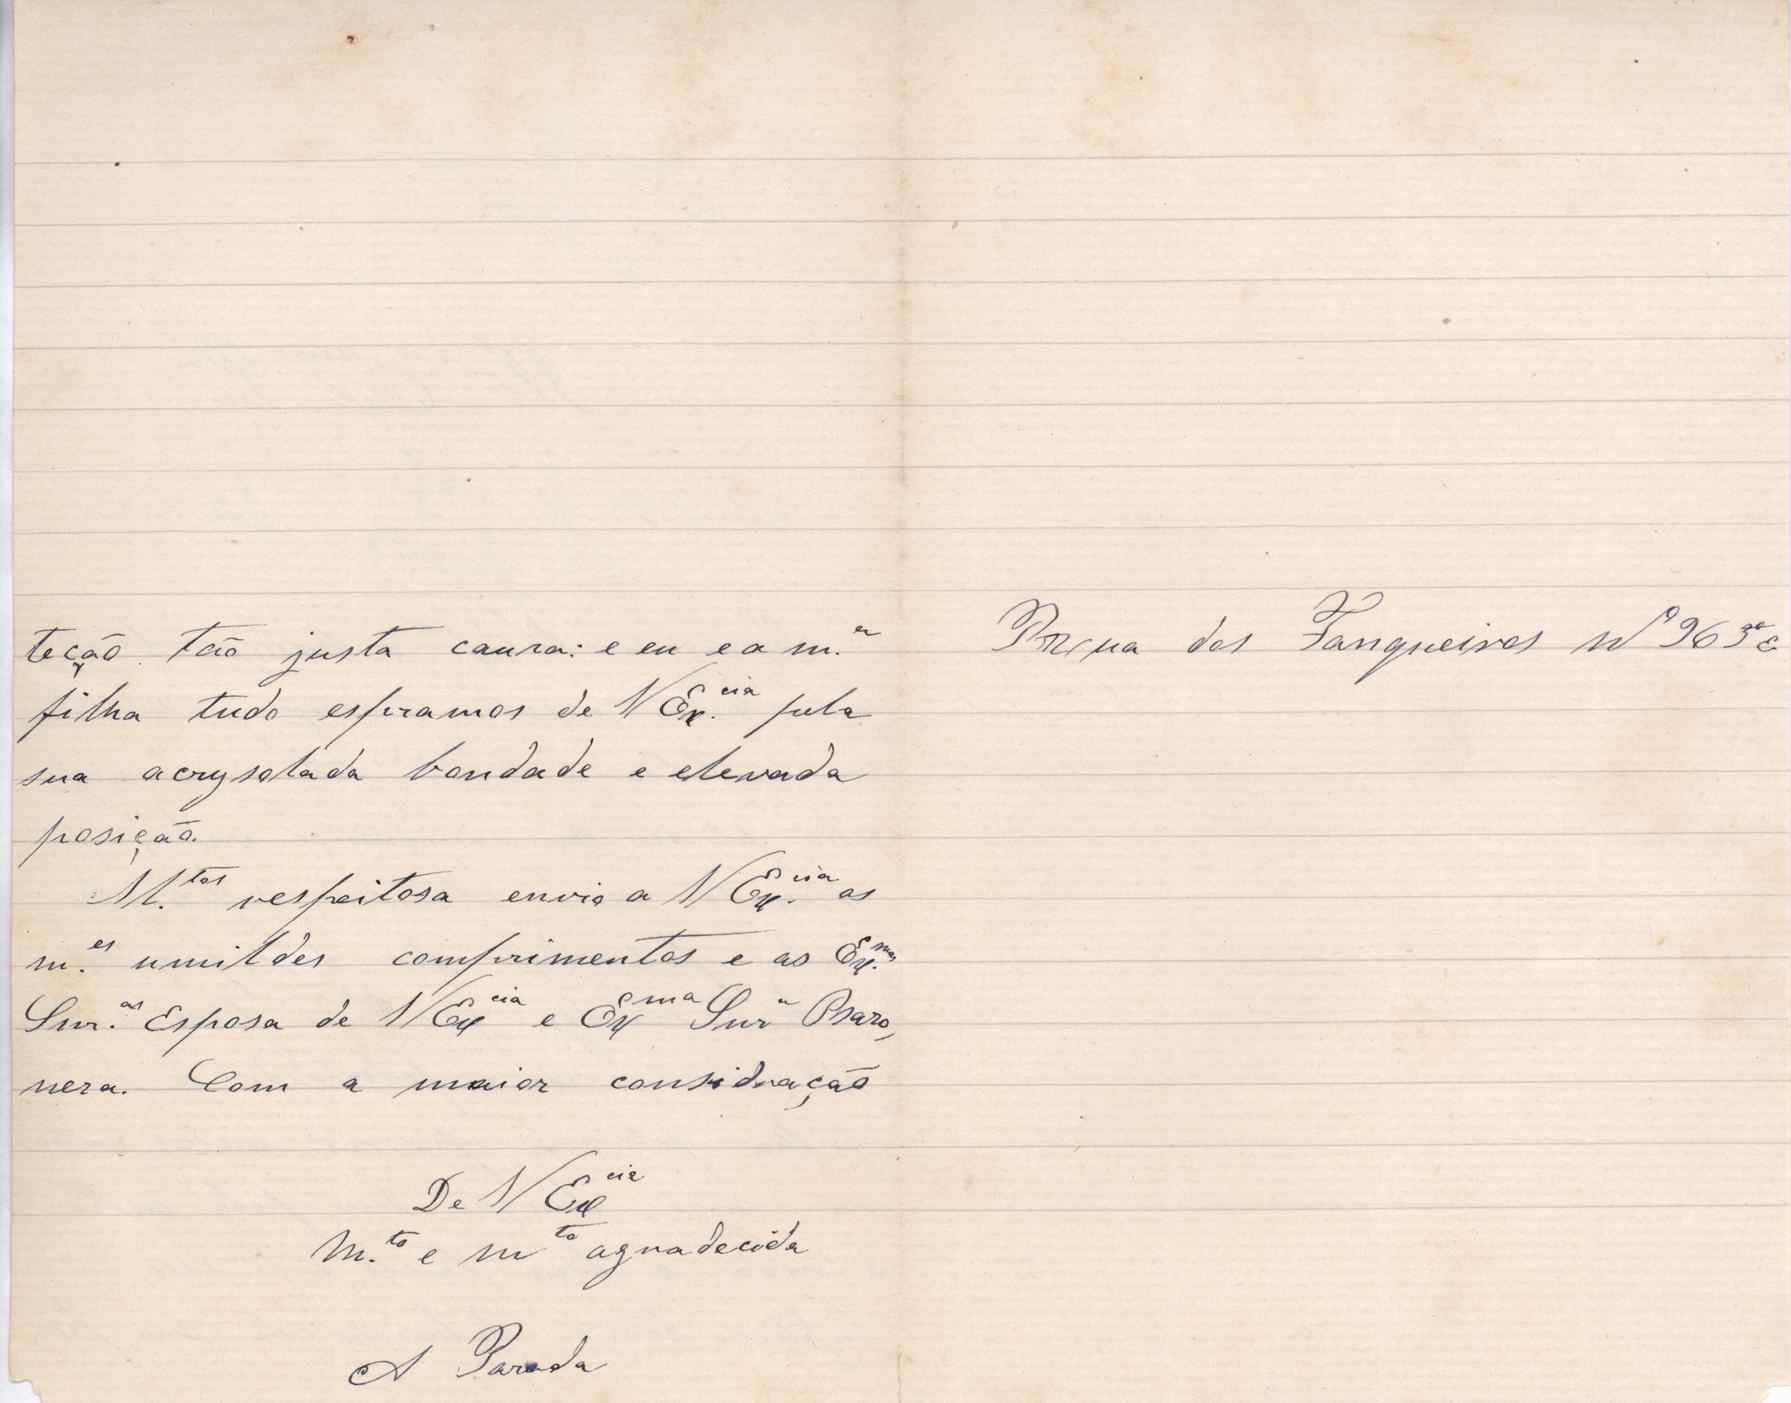 teção tão justa causa: e eu e a m.ª
filha tudo esperamos de V Ex.cia pela
sua acrysolada bondade e elevada
posição.
M.tos respeitosa envio a V Ex.cia as
m.es umildes comprimentos e as Ex.mas
Snr.as Esposa de V Excia e Exma Snra Baro,
neza. Com a maior consideração
De V Excia
M.to e mto agradecida
A Parada
Rua dos Fanqueiros Nº 96 3º E